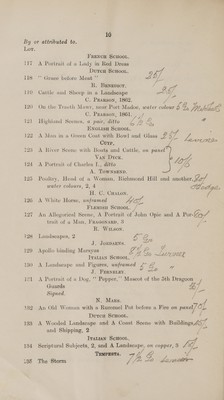 10
By or attributed to.
Lot.
French School.
117 A Portrait of a Lady in Red Dress
Dutch School.
118 " Grace before Meat "
R. Beneroft.
119 Cattle and Sheep in a Landscape
C. Pearson, 1862.
120 On the Traeth Mawr, near Port Madoc, water colour
C. Pearson, 1861.
121 Highland Scenes, a pair, ditto
English School.
122 A Man in a Green Coat with Bowl and Glass
Cuyp,
123 A River Scene with Boats and Cattle, on panel
Van Dyck.
124 A Portrait of Charles I., ditto
A. Townsend.
125 Poultry, Head of a Woman, Richmond Hill and another,
water colours, 2, 4
H. C. Chalon.
126 A White Horse, unframed
Flemish School.
127 An Allegorical Scene, A Portrait of John Opie and A Por-
trait of a Man,
R. Wilson.
128 Landscapes, 2
J. Jordaens.
129 Apollo binding Marsyas
Italian School.
130 A Landscape and Figures, unframed
J. Ferneley.
131 A Portrait of a Dog, " Pepper," Mascot of the 5th Dragoon
Guards
Signed.
N. Maes.
132 An Old Woman with a Baronial Pot before a Fire on panel
Dutch School.
133 A Wooded Landscape and A Coast Scene with Buildings,
and Shipping, 2
Italian School.
134 Scriptural Subjects, 2, and A Landscape, on copper, 3
Tempesta.
135 The Storm